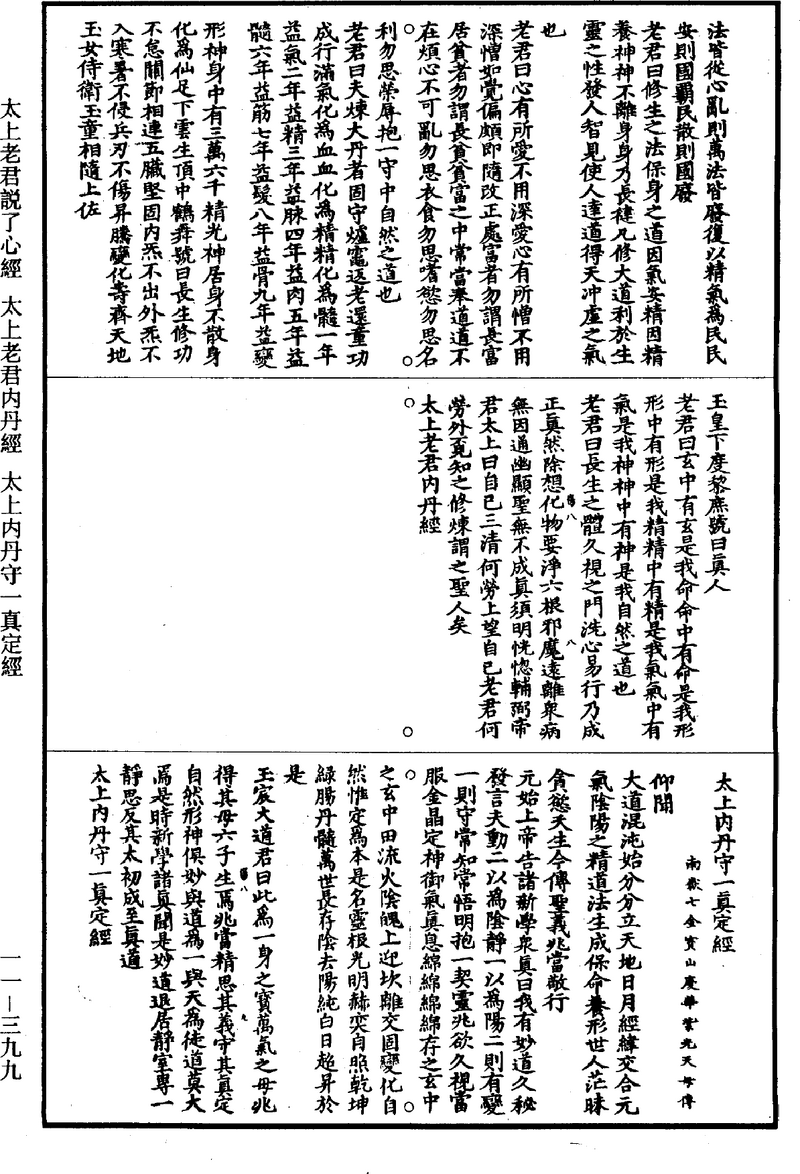 法皆從心亂則萬法皆廢復以精氣為民民
安則國霸民散則國廢
老君曰修生之法保身之道因氣安精因精
養神神不離身身乃長健凡修大道利於生
靈之性發人智見使人達道得天沖虛之氣
也
老君曰心有所愛不用深愛心有所憎不用
深憎如覺偏頗即隨改正處富者勿謂長富
居貧者勿謂長貧貧富之中常當奉道道不
在煩心不可亂勿思衣食勿思嗜慾勿思名
利勿思榮辱抱一守中自然之道也
老君曰夫煉大丹者固守爐竈返老還童功
成行滿氣化為血血化為精精化為髓一年
益氣二年益精三年益脉四年益肉五年益
髓六年益筋七年益髮八年益骨九年益變
形神身中有三萬六千精光神居身不散身
化為仙足下雲生頂中鶴舞號曰長生修功
不怠關節相連五臟堅固內炁不出外炁不
入寒暑不侵兵刃不傷昇騰變化壽齊天地
玉女侍衛玉童相隨上佐
玉皇下度黎庶號曰真人
老君曰玄中有玄是我命命中有命是我形
形中有形是我精精中有精是我氣氣中有
氣是我神神中有神是我自然之道也
老君曰長生之體久視之門洗心易行乃成
正真然除想化物要淨六根邪魔遠離眾病
無因通幽顯聖無不成真須明恍惚輔弼帝
君太上曰自己三清何勞上望自己老君何
勞外覓知之修煉謂之聖人矣
太上老君內丹經
太上內丹守一真定經
南嶽七金寶山慶華紫光天母傳
仰聞
大道混沌始分分立天地日月經緯交合元
氣陰陽之精道法生成保命養形世人茫昧
貪慾天生今傳聖義兆當敬行
元始上帝告諸新學眾真曰我有妙道久秘
發言夫動二以為陰靜一以為陽二則有變
一則守常知常悟明抱一契靈兆欲久視當
服金晶定神御氣真息綿綿綿綿存之玄中
之玄中田流火陰魄上迎坎離交固變化自
然惟定為本是名靈根光明赫奕自照乾坤
綠腸丹髓萬世長存陰去陽純白日超昇於
是
玉宸大道君曰此為一身之寶萬氣之母兆
得其母六子生焉兆當精思其義守其真定
自然形神俱妙與道為一與天為徒道莫大
焉是時新學諸真聞是妙道退居靜室專一
靜思反其太初成至真道
太上內丹守一真定經
太上老君說了心經 太上老君內丹經 太上內丹守一真定經
一一—三九九